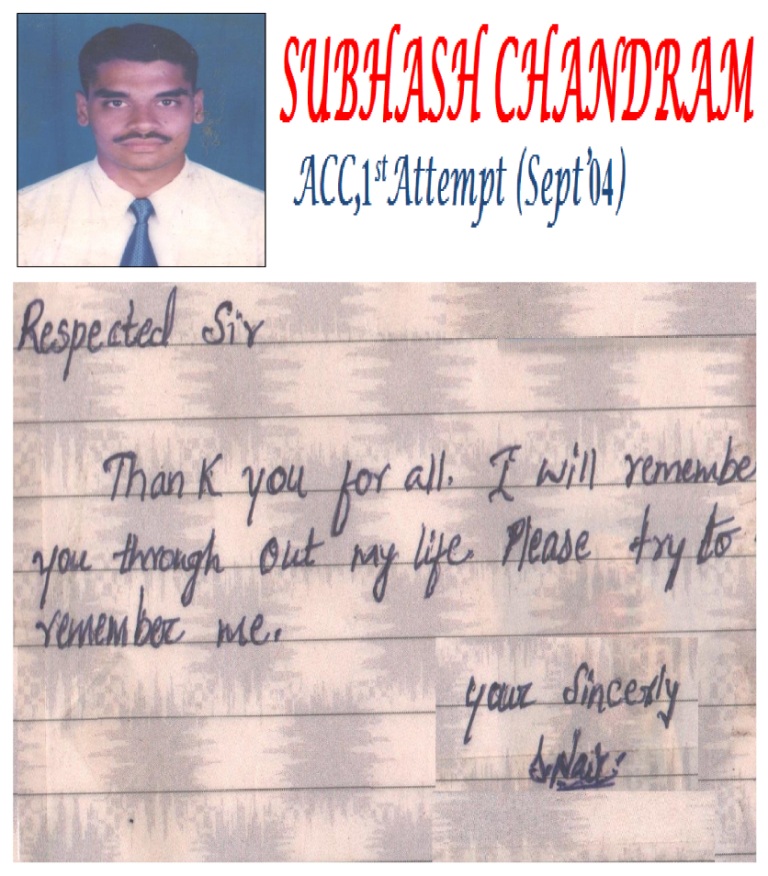 SUBHASH CHANDRAM
ACC,1st Attempt (Sept'04)
Respected Sir
Thank you for all. I will remembe
you through out my life. Please try to
remember me.
your Sincerly
S.Nair.